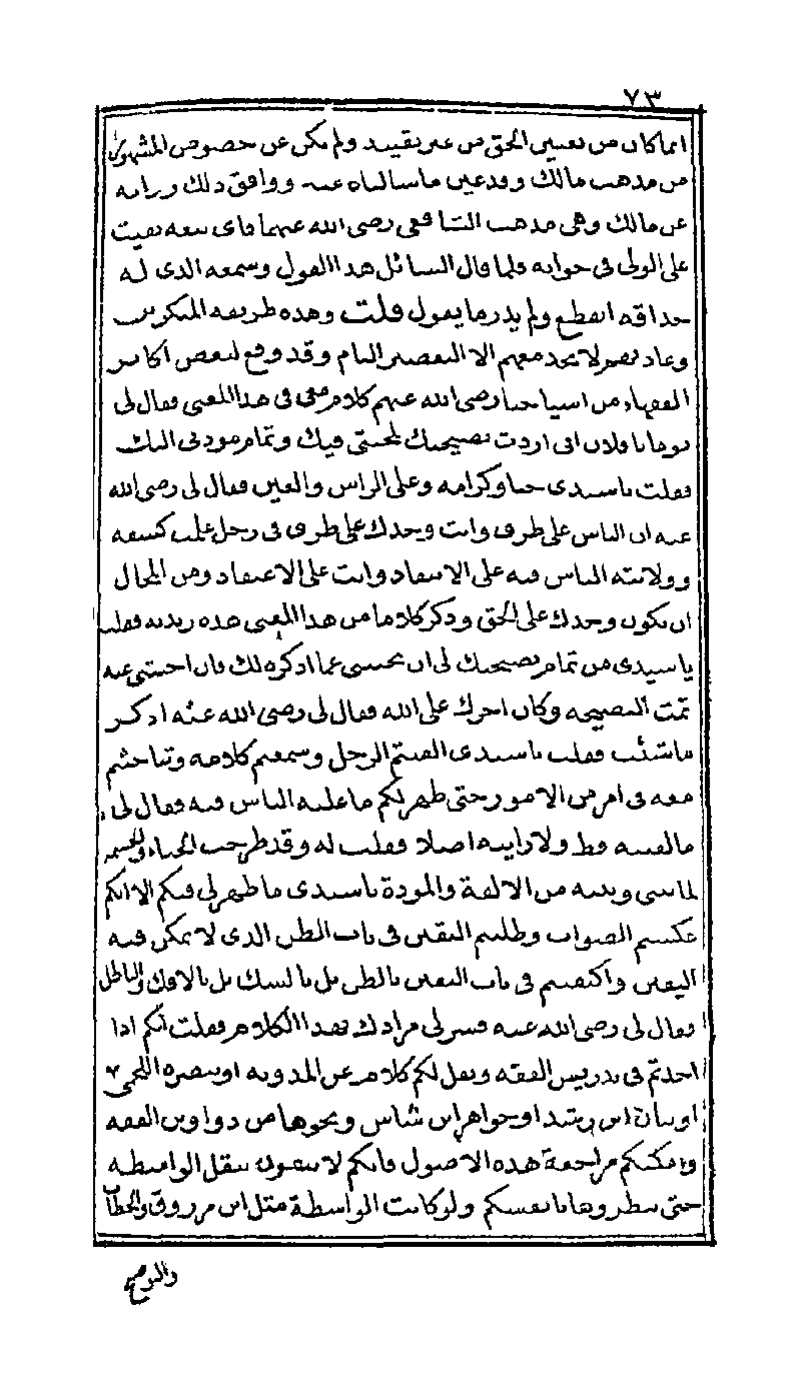 ٧٣
انما كان من تعيين الحق من غير تقييد ولم يكن عن خصوص المشهور
من مذهب مالك وقد عين ما سالناه عنه ووافق ذلك رواية
عن مالك وهي مذهب الشافعي رضي الله عنهما فاي تبعة بقيت
على الولي في جوابه فلما قال السائل هذا القول وسمعه الذي له
حذاقة انقطع ولم يدر ما يقول قلت وهذه طريقة المنكرين
وعادتهم لا تجد معهم الا التعصير التام وقد وقع لبعض اكابر
الفقهاء من اشياخنا رضي الله عنهم كلام معي في هذا المعنى فقال لي
يوما يا فلان اني اردت نصيحتك لمحبتي فيك وتمام مودتي اليك
فقلت يا سيدي حبا وكرامة وعلى الراس والعين فقال لي رضي الله
عنه ان الناس على طرف وانت وحدك على طرف في رجل غلب كشفه
وولايته الناس فيه على الانتقاد وانت على الاعتقاد ومن المحال
ان تكون وحدك على الحق وذكر كلاما من هذا المعنى هذه زبدته فقلت
يا سيدي من تمام نصيحتك لي ان تجيبني عما اذكره لك فان اجبتني عنه
تمت النصيحة وكان اجرك على الله فقال لي رضي الله عنه اذكر
ما شئت فقلت يا سيدي القيتم الرجل وسمعتم كلامه وتباحثتم
معه في امر من الامور حتى ظهر لكم ما عليه الناس فيه فقال لي
ما لقيته قط ولا رايته اصلا فقلت له وقد طرحت الحياء والحشمة
لما بيني وبينه من الالفة والمودة يا سيدي ما ظهر لي فيكم الا انكم
عكستم الصواب وطلبتم اليقين في باب الظن الذي لا يمكن فيه
اليقين واكتفيتم في باب اليقين بالظن بل بالشك بل بالافك والباطل
فقال لي رضي الله عنه فسر لي مرادك بهذا الكلام فقلت انكم اذا
اخذتم في تدريس الفقه ونقل لكم كلام عن المدونة او تبصرة اللخمي
او بيان ابن رشد او جواهر ابن شاس ونحوها من دواوين الفقه
وامكنكم مراجعة هذه الاصول فانكم لا تثقون بنقل الواسطة
حتى تنظروها بانفسكم ولو كانت الواسطة مثل ابن مرزوق والحطاب
والتوضيح